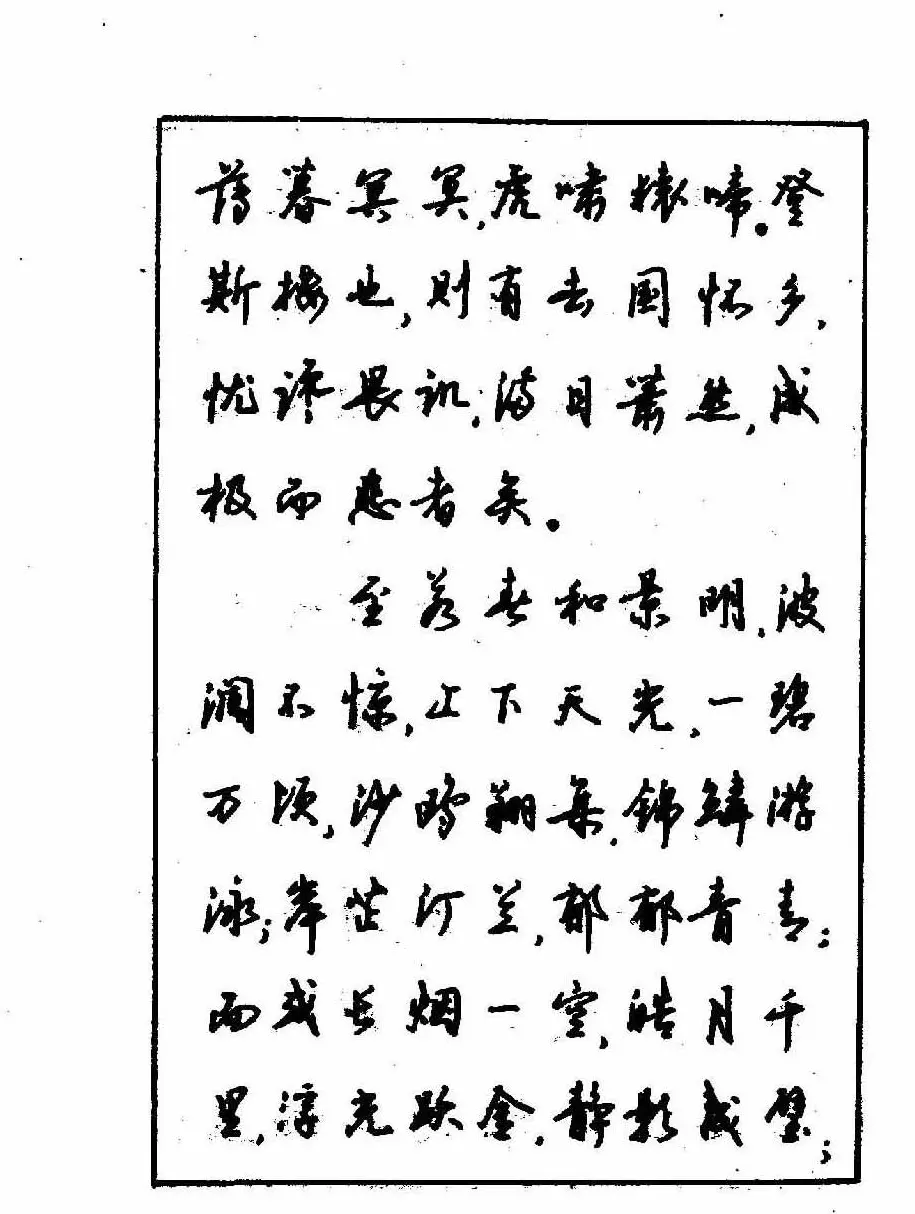 薄暮冥冥,虎啸猿啼。登
斯楼也,则有去国怀乡,
忧谗畏讥,满目萧然,感
极而悲者矣。
至若春和景明,波
澜不惊,上下天光,一碧
万顷,沙鸥翔集,锦鳞游
泳;岸芷汀兰,郁郁青青;
而或长烟一空,皓月千
里,浮光跃金,静影成璧;